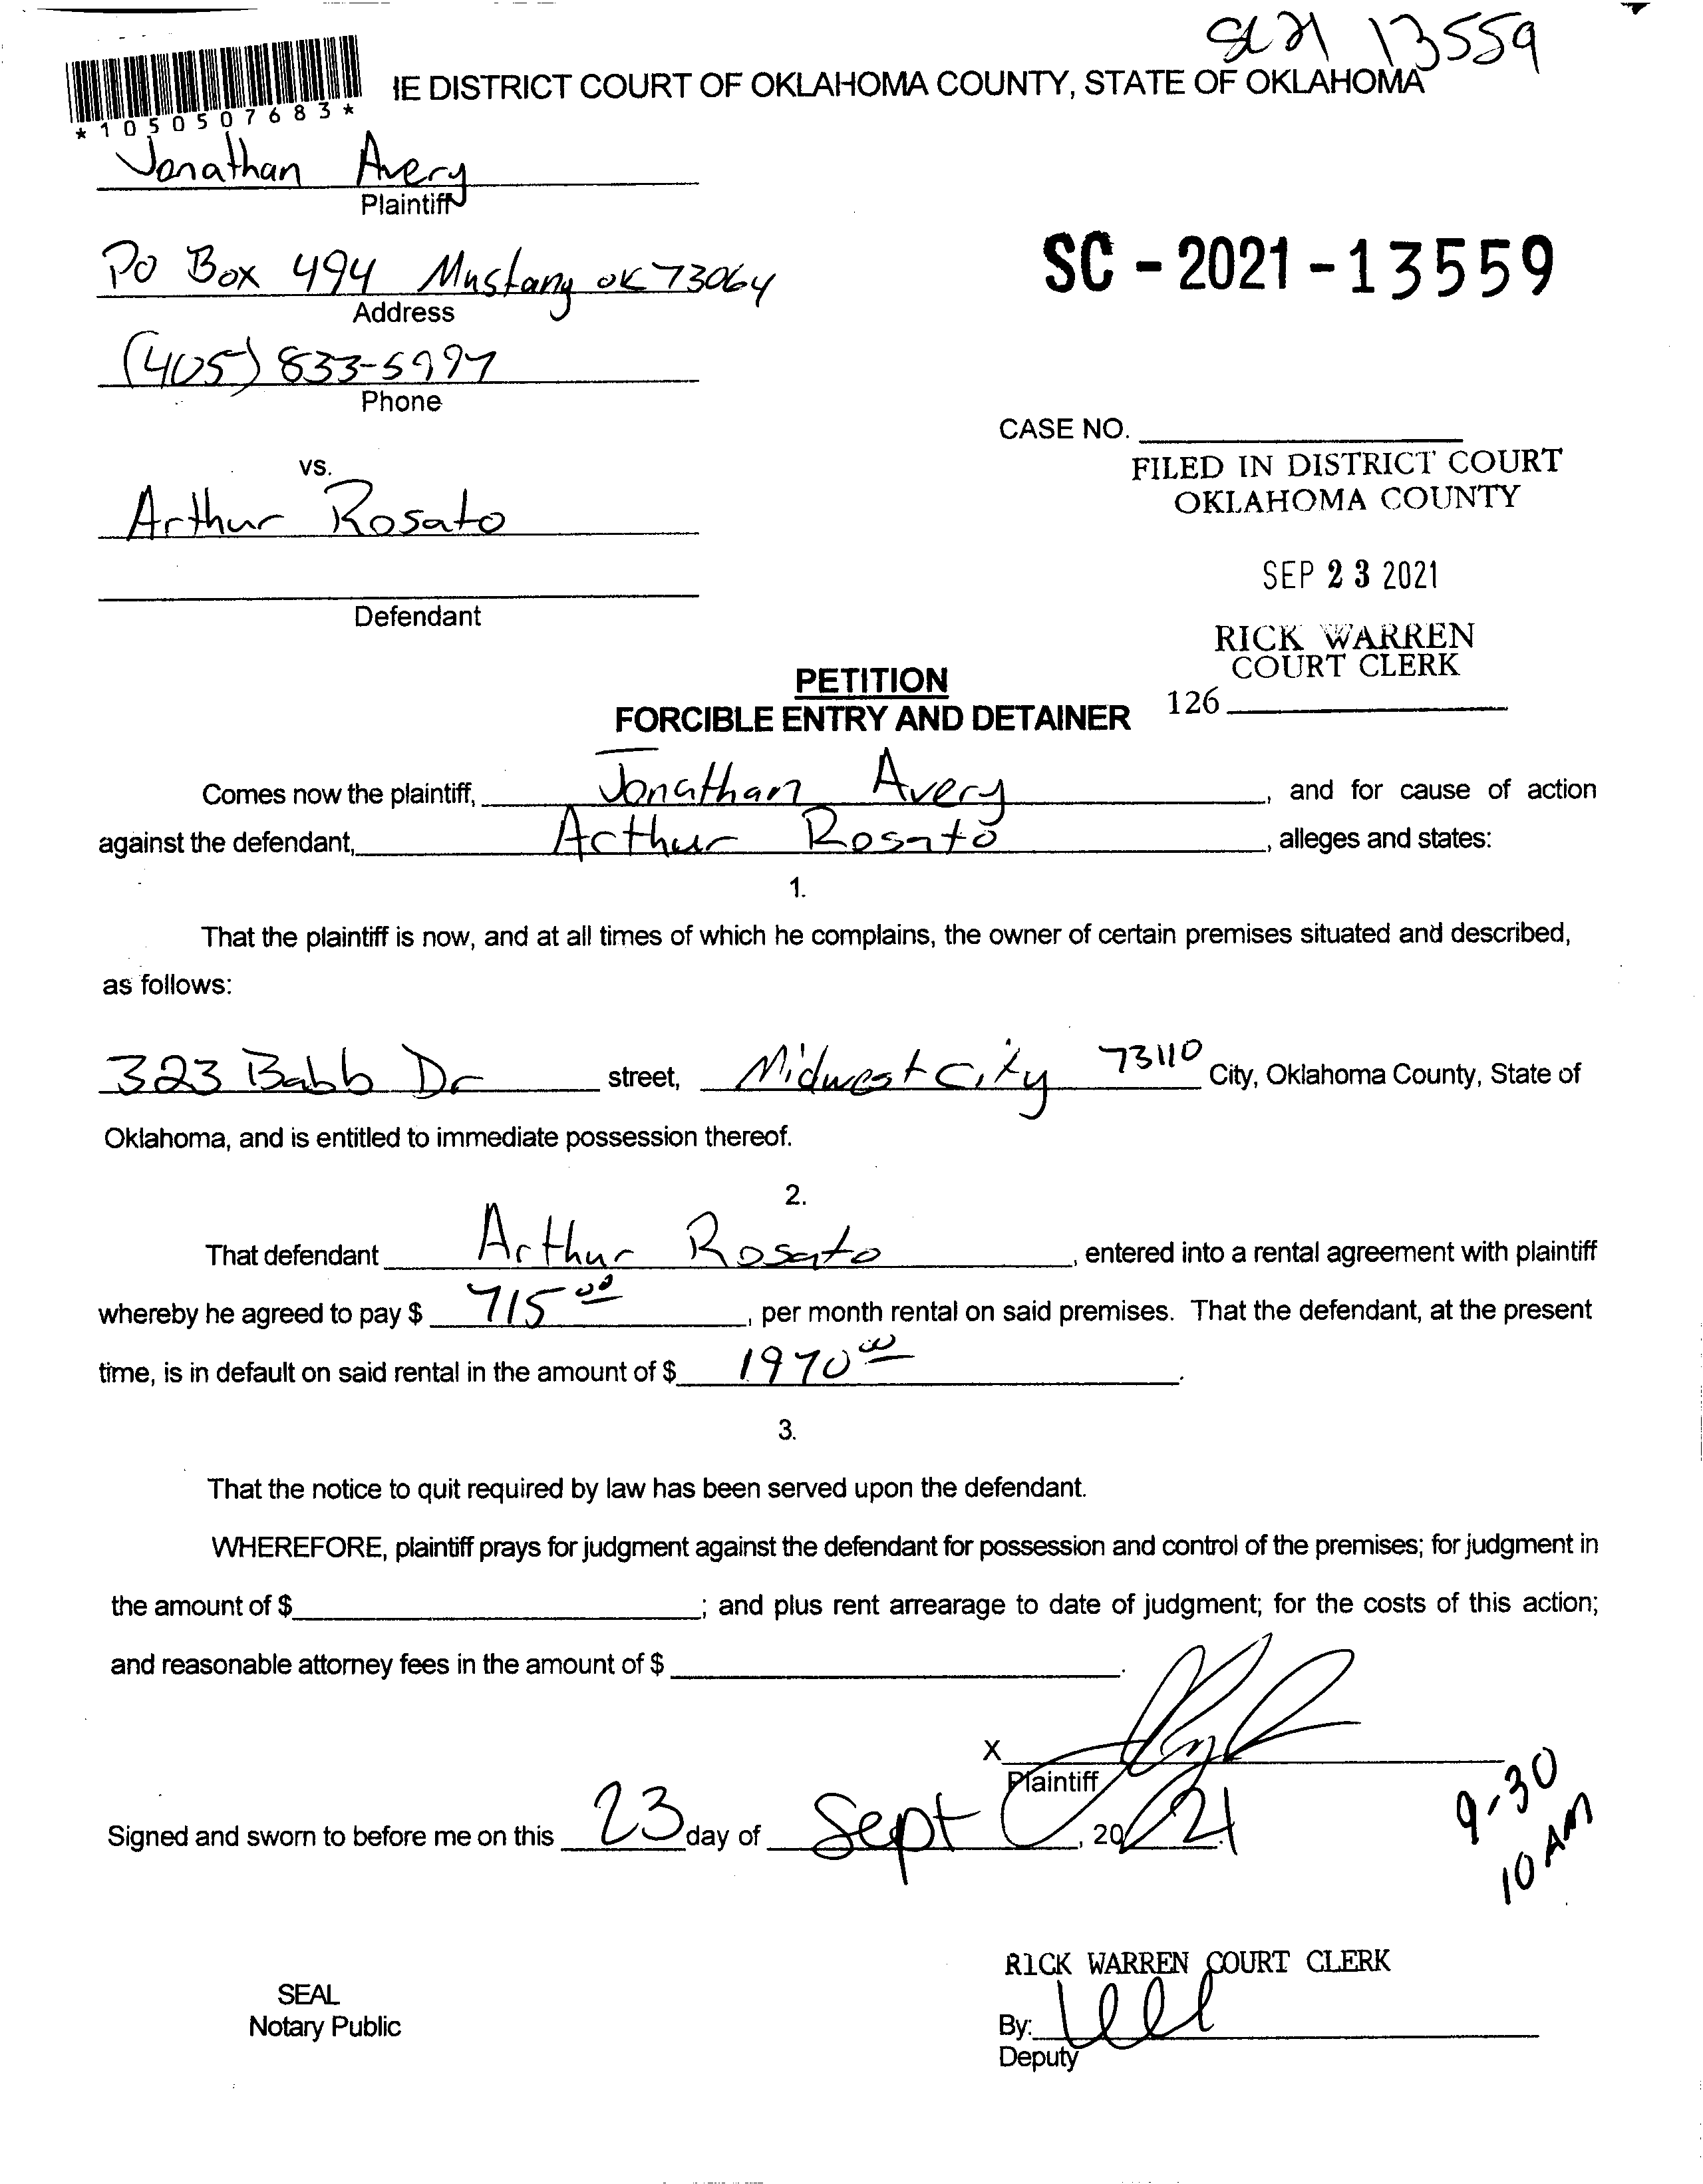 SC21 13559
IE DISTRICT COURT OF OKLAHOMA COUNTY, STATE OF OKLAHOMA
*1050507683*
Jonathan Avery
Plaintiff
PO Box 494 Mustang OK 73064
Address
SC - 2021 - 13559
(405) 833-5997
Phone
CASE NO.
vs.
FILED IN DISTRICT COURT
OKLAHOMA COUNTY
Arthur Rosato
SEP 23 2021
Defendant
RICK WARREN
COURT CLERK
126
PETITION
FORCIBLE ENTRY AND DETAINER
Comes now the plaintiff, Jonathan Avery, and for cause of action
against the defendant, Arthur Rosato, alleges and states:
1.
That the plaintiff is now, and at all times of which he complains, the owner of certain premises situated and described,
as follows:
323 Babb Dr street, Midwest City 73110 City, Oklahoma County, State of
Oklahoma, and is entitled to immediate possession thereof.
2.
That defendant Arthur Rosato, entered into a rental agreement with plaintiff
whereby he agreed to pay $ 715 00, per month rental on said premises. That the defendant, at the present
time, is in default on said rental in the amount of $ 1970 00.
3.
That the notice to quit required by law has been served upon the defendant.
WHEREFORE, plaintiff prays for judgment against the defendant for possession and control of the premises; for judgment in
the amount of $; and plus rent arrearage to date of judgment; for the costs of this action;
and reasonable attorney fees in the amount of $.
X
Plaintiff
Signed and sworn to before me on this 23 day of Sept, 2021
9-30
10 AM
RICK WARREN COURT CLERK
SEAL
Notary Public
By:
Deputy